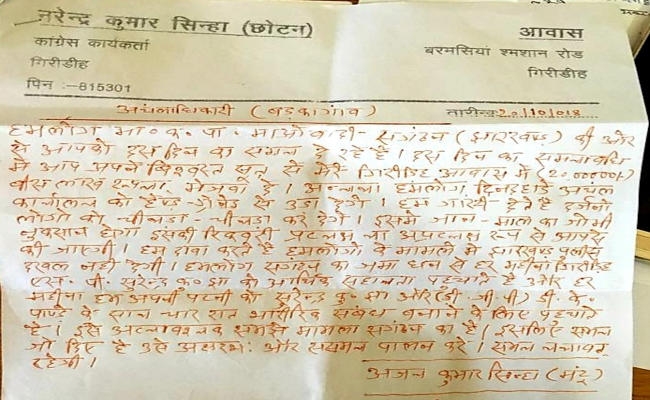 नरेन्द्र कुमार सिन्हा (छोटन)
कांग्रेस कार्यकर्ता
गिरीडीह
पिन :–815301
आवास
बरमसियां श्मशान रोड
गिरीडीह
अंचलाधिकारी (बड़कागांव) तारीख 20/10/018
हमलोग भा० क० पा० माओवादी संगठन (झारखण्ड) की ओर
से आपको दस दिन का समय दे रहे हैं। दस दिन का समयावधि
में आप अपने विश्वस्त सूत्र से मेरे गिरिडीह आवास में (20,00000/)
बीस लाख रुपया भेजवा दें। अन्यथा हमलोग दिनदहाड़े अंचल
कार्यालय को हैण्ड ग्रेनेड से उड़ा देंगे। हम गारंटी देते हैं दर्जनों
लोगों को चीथड़ा-चीथड़ा कर देंगे। इसमें जान-माल का जो भी
नुकसान होगा इसकी रिकवरी प्रत्यक्ष या अप्रत्यक्ष रूप से आपसे
की जाएगी। हम दावा करते हैं हमलोगों के मामले में झारखण्ड पुलीस
दखल नहीं देगी। हमलोग संगठन का जमा धन से हर महीना गिरिडीह
एस. पी. सुरेन्द्र क० झा को आर्थिक सहायता पहुंचाते हैं और हर
महीना हम अपनी पत्नी को सुरेन्द्र कु० झा और (डी. जी. पी) डी. के.
पाण्डे के साथ चार रात शारीरिक संबंध बनाने के लिए पहुंचाते
हैं। इसे अत्यावश्यक समझें मामला संगठन का है। इसलिए समय
जो दिए हैं उसे अक्षरशः और ससमय पालन करें। समय बचाकर
रहेगी।
अजय कुमार सिन्हा (मंटू)